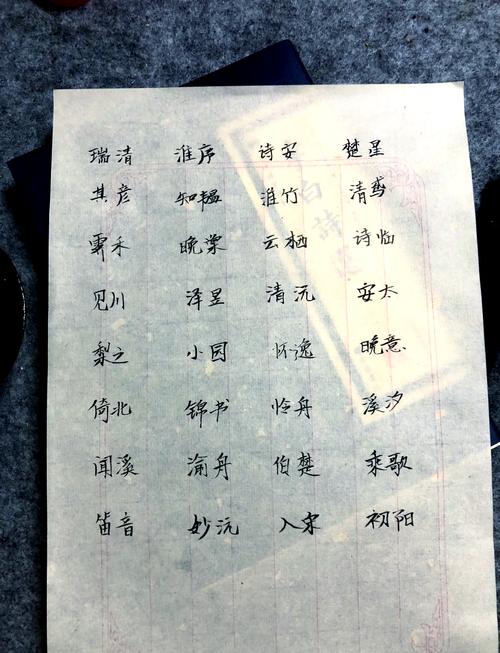 瑞清 淮序 诗安 楚星
其彦 知韫 淮竹 清鸢
霁禾 晚棠 云栖 诗临
见川 泽昱 清沅 安太
梨之 小园 怀逸 晚意
倚北 锦书 怜舟 溪汐
闻溪 渝舟 伯楚 乘歌
笛音 妙沅 入宋 初阳